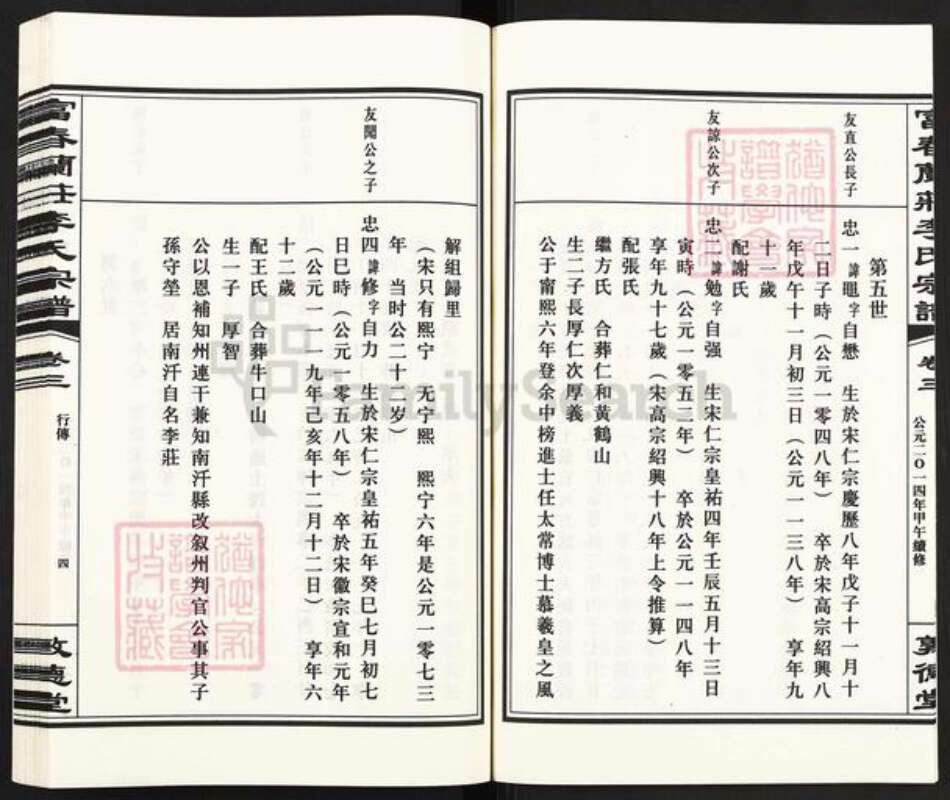 富春蘭莊李氏宗譜
卷三
公元二〇一四年甲午續修
敦德堂
第五世
友直公長子
忠一 諱黽字自懋 生於宋仁宗慶歷八年戊子十一月十
一日子時（公元一零四八年） 卒於宋高宗紹興八
年戊午十一月初三日（公元一一三八年） 享年九
十一歲
配謝氏
友諒公次子
忠二 諱勉字自强 生宋仁宗皇祐四年壬辰五月十三日
寅時（公元一零五二年） 卒於公元一一四八年
享年九十七歲（宋高宗紹興十八年上令推算）
配張氏
繼方氏 合葬仁和黃鶴山
生二子長厚仁次厚義
公于甯熙六年登余中榜進士任太常博士慕羲皇之風
解組歸里
（宋只有熙宁 无宁熙 熙宁六年是公元一零七三
年 当时公二十二岁）
友聞公之子
忠四 諱修字自力 生於宋仁宗皇祐五年癸巳七月初七
日巳時（公元一零五八年） 卒於宋徽宗宣和元年
（公元一一一九年己亥年十二月十二日） 享年六
十二歲
配王氏 合葬牛口山
生一子 厚智
公以恩補知州連干兼知南汧縣改叙州判官公事其子
孫守塋 居南汧自名李莊
富春蘭莊李氏宗譜
卷三
行傳
四
敦德堂
FamilySearch